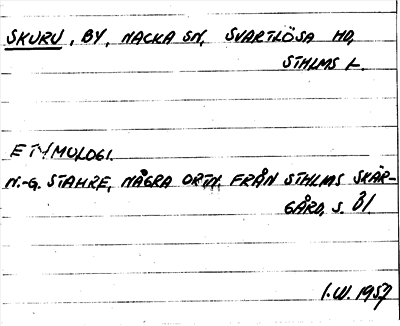 SKURU, BY, NACKA SN, SVARTLÖSA HD,
STHLMS L.
ETYMOLOGI.
N.-G. STAHRE, NÅGRA ORTN. FRÅN STHLMS SKÄR-
GÅRD, S. 81.
I.W. 1957